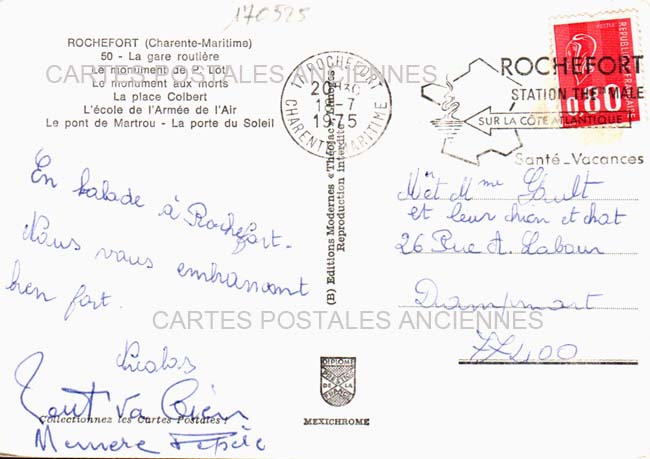 170525
ROCHEFORT (Charente-Maritime)
50 - La gare routière
Le monument de P. Loti
Le monument aux morts
La place Colbert
L'école de l'Armée de l'Air
Le pont de Martrou - La porte du Soleil
CARTES POSTALES ANCIENNES
17 ROCHEFORT
20H30
-7
1975
CHARENTE MARITIME
ROCHEFORT
STATION THERMALE
SUR LA CÔTE ATLANTIQUE
Santé-Vacances
REPUBLIQUE FRANCAISE
0,80
En balade à Rochefort.
Nous vous embrassons
bien fort.
Nicolas
Tout va bien
Memere Pepère
(B) Editions Modernes «Théojac»
Reproduction interdite
Mr et Mme
et leur chien et chat
26 Rue A. Labour
77400
CARTES POSTALES ANCIENNES
DIPLOME
DE LA
MEXICHROME
Collectionnez les Cartes Postales !